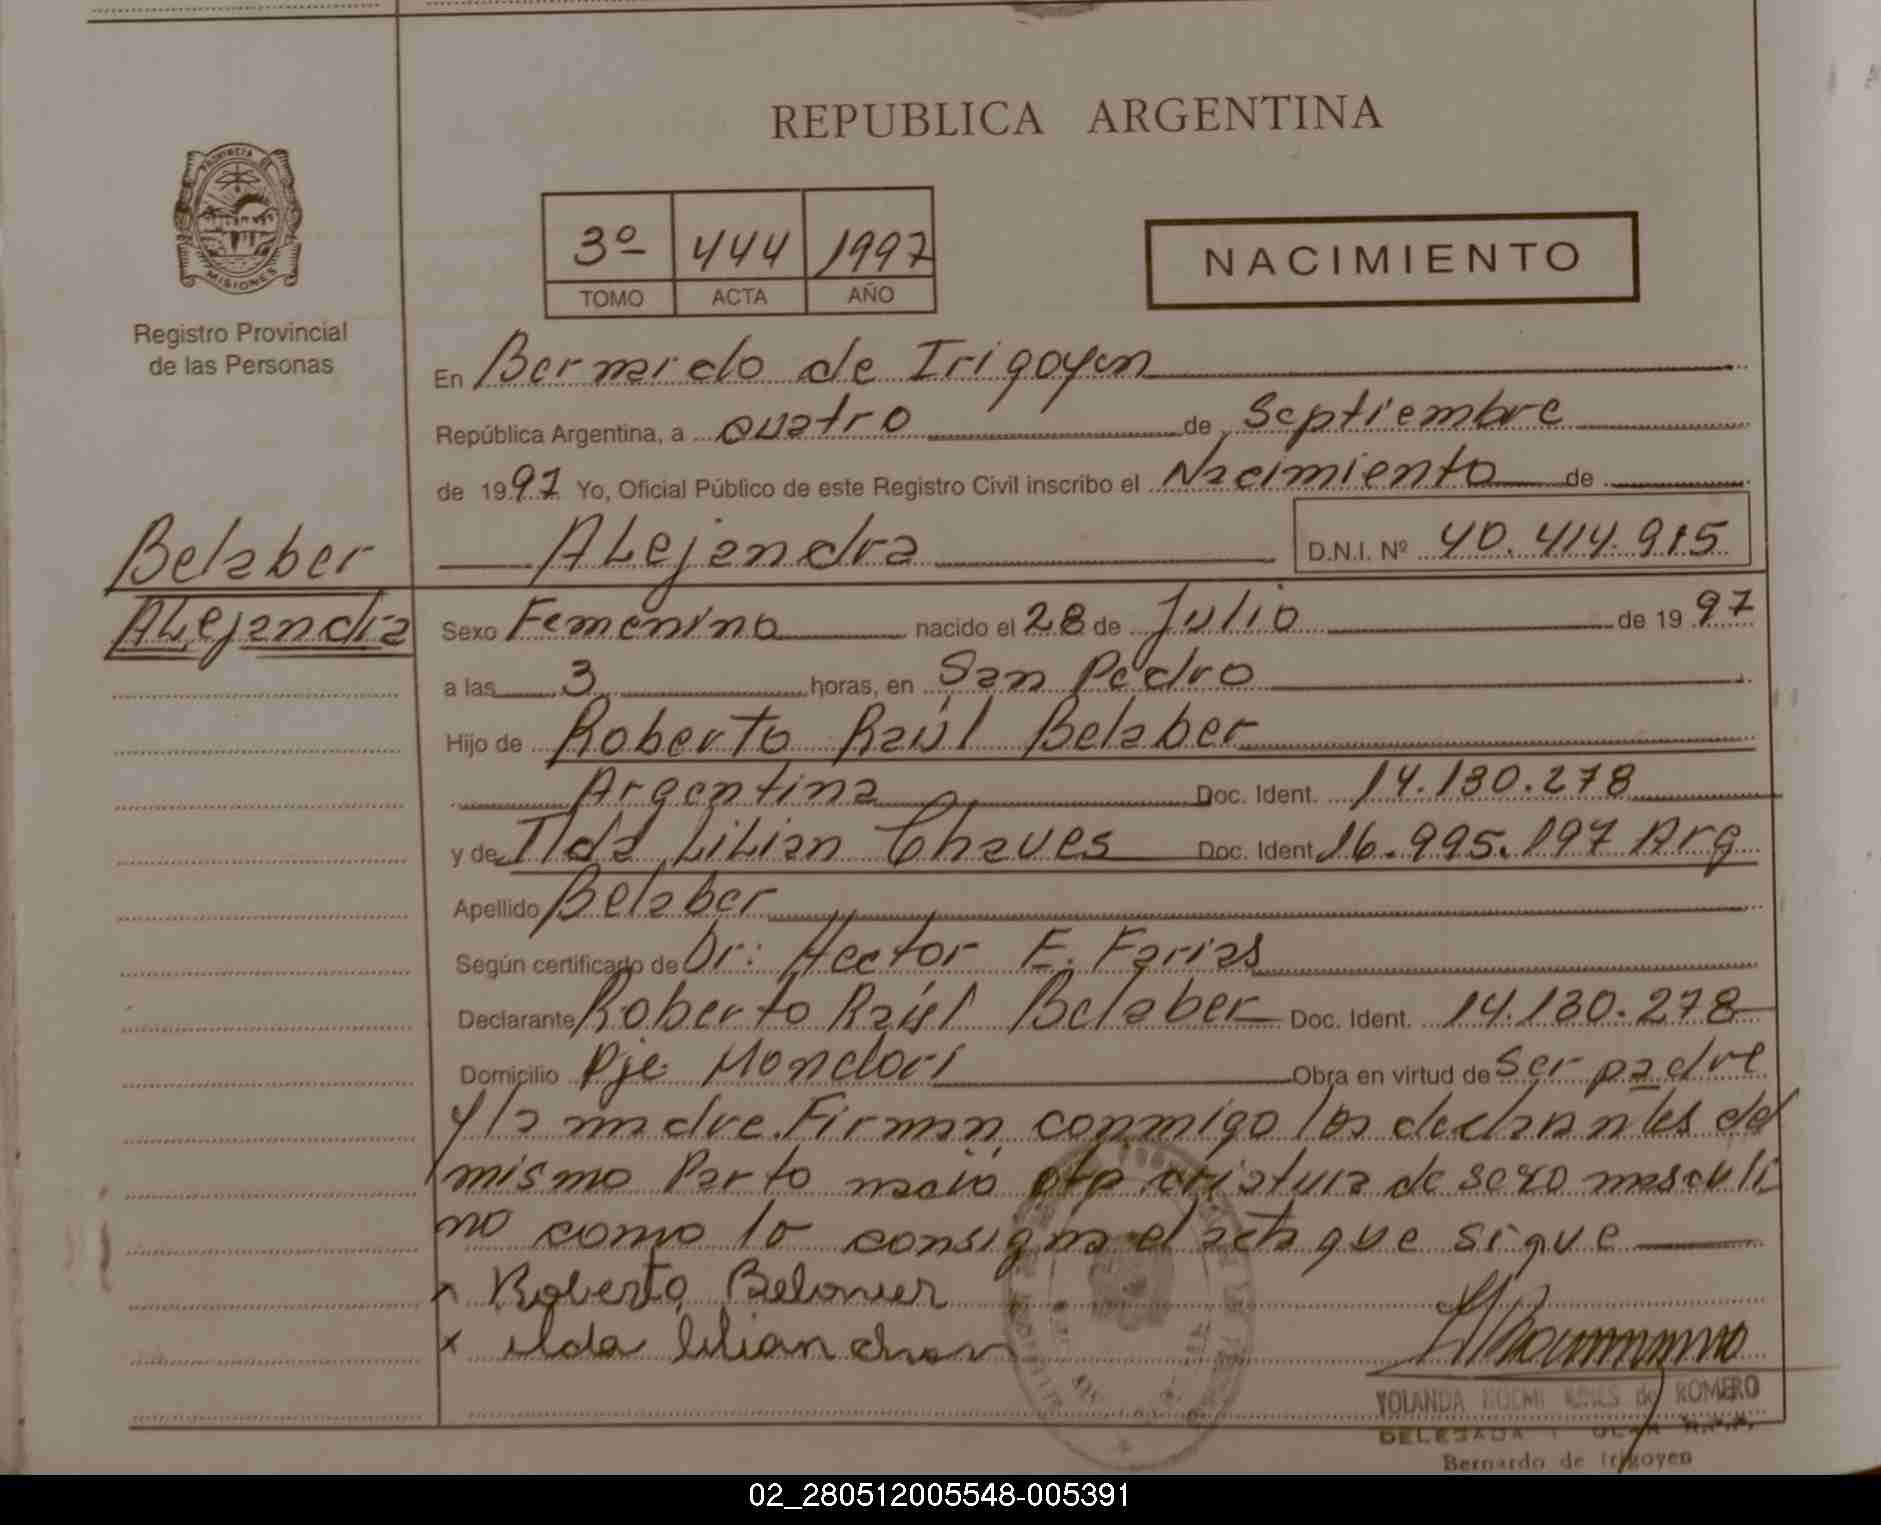 REPUBLICA ARGENTINA
PROVINCIA DE MISIONES
Registro Provincial
de las Personas
3º 444 1997
TOMO ACTA AÑO
NACIMIENTO
En Bernardo de Irigoyen
República Argentina, a cuatro de Septiembre
de 1997 Yo, Oficial Público de este Registro Civil inscribo el Nacimiento de
Alejandra D.N.I. Nº 40.414.915
Belaber
Alejandra
Sexo Femenino nacido el 28 de Julio de 1997
a las 3 horas, en San Pedro
Hijo de Roberto Raúl Belaber
Argentina Doc. Ident. 14.130.278
y de Ilda Lilian Chaves Doc. Ident. 16.995.197 Arg
Apellido Belaber
Según certificado de Dr: Hector E. Farias
Declarante Roberto Raúl Belaber Doc. Ident. 14.130.278
Domicilio Pje Mondori Obra en virtud de ser padre
y la madre. Firman conmigo los declarantes del
mismo Parto nació otra criatura de sexo masculi
no como lo consigna el acta que sigue
x Roberto
x ilda lilian
YOLANDA NOEMI de ROMERO
DELEGADA
Bernardo de Irigoyen
02_280512005548-005391